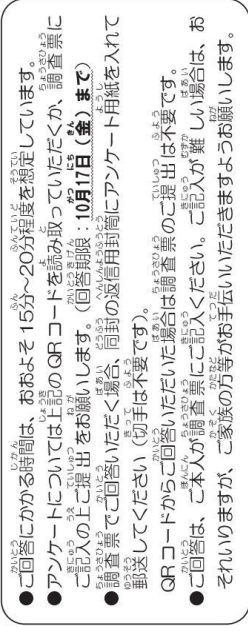 ●ご回答にかかる時間は、おおよそ15分～20分程度を想定しています。
●アンケートについては上記のQRコードを読み取っていただくか、調査票に
ご記入の上ご提出をお願いします。（回答期限：10月17日（金）まで）
●調査票でご回答いただく場合、同封の返信用封筒にアンケート用紙を入れて
郵送してください（切手は不要です）。
QRコードからご回答いただいた場合は調査票のご提出は不要です。
●ご回答は、ご本人が調査票にご記入ください。ご記入が難しい場合は、お
それいりますが、ご家族の方等がお手伝いいただきますようお願いします。